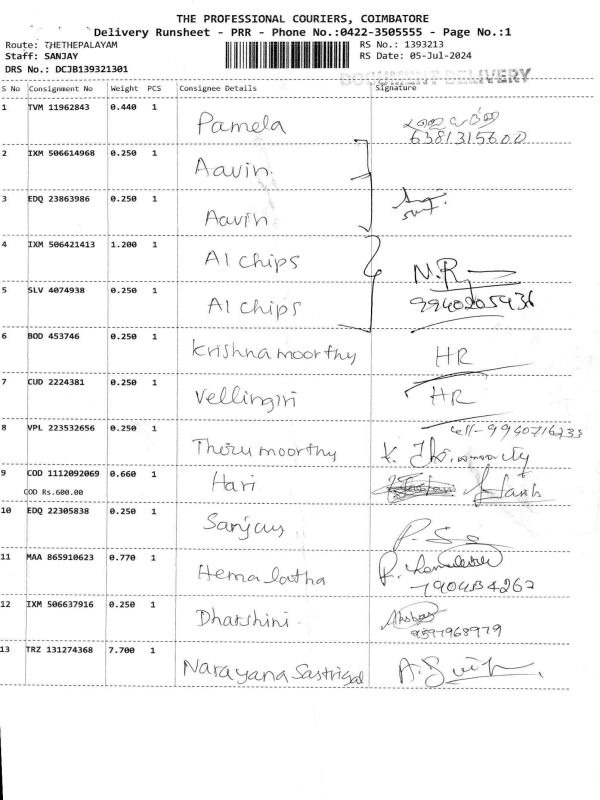 THE PROFESSIONAL COURIERS, COIMBATORE
Delivery Runsheet - PRR - Phone No.:0422-3505555 - Page No.:1
Route: THETHEPALAYAM RS No.: 1393213
Staff: SANJAY RS Date: 05-Jul-2024
DRS No.: DCJB139321301
DOCUMENT DELIVERY
S No Consignment No Weight PCS Consignee Details Signature
1 TVM 11962843 0.440 1 Pamela
6381315600
2 IXM 506614968 0.250 1 Aavin
3 EDQ 23863986 0.250 1 Aavin
4 IXM 506421413 1.200 1 A1 chips N.R
5 SLV 4074938 0.250 1 A1 chips 9940205436
6 BOD 453746 0.250 1 Krishnamoorthy HR
7 CUD 2224381 0.250 1 Vellingiri HR
8 VPL 223532656 0.250 1 Thirumoorthy cell-9940716733
9 COD 1112092069 0.660 1 Hari
COD Rs.600.00
10 EDQ 22305838 0.250 1 Sanjay
11 MAA 865910623 0.770 1 Hemalatha
12 IXM 506637916 0.250 1 Dharshini
9597968979
13 TRZ 131274368 7.700 1 Narayana Sastrigal